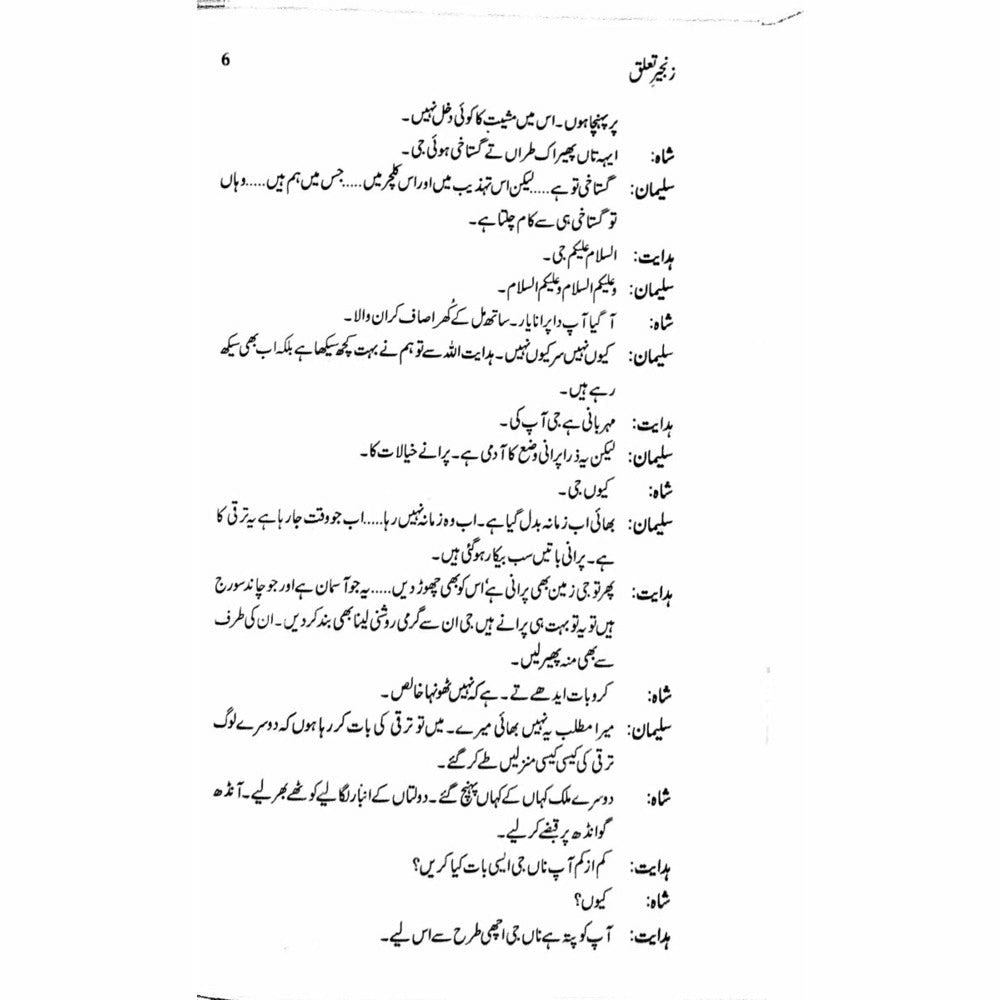 زنجیرِ تعلق
6
پر پہنچا ہوں۔ اس میں مشیت کا کوئی دخل نہیں۔
شاہ: ایہہ تاں پھیر اک طراں تے گستاخی ہوئی جی۔
سلیمان: گستاخی تو ہے.....لیکن اس تہذیب میں اور اس کلچر میں.....جس میں ہم ہیں.....وہاں
تو گستاخی ہی سے کام چلتا ہے۔
ہدایت: السلام علیکم جی۔
سلیمان: وعلیکم السلام وعلیکم السلام۔
شاہ: آ گیا آپ دا پرانا یار۔ ساتھ مل کے کُھرا صاف کران والا۔
سلیمان: کیوں نہیں سر کیوں نہیں۔ ہدایت اللہ سے تو ہم نے بہت کچھ سیکھا ہے بلکہ اب بھی سیکھ
رہے ہیں۔
ہدایت: مہربانی ہے جی آپ کی۔
سلیمان: لیکن یہ ذرا پرانی وضع کا آدمی ہے۔ پرانے خیالات کا۔
شاہ: کیوں جی۔
سلیمان: بھائی اب زمانہ بدل گیا ہے۔ اب وہ زمانہ نہیں رہا.....اب جو وقت جا رہا ہے یہ ترقی کا
ہے۔ پرانی باتیں سب بیکار ہو گئی ہیں۔
ہدایت: پھر تو جی زمین بھی پرانی ہے‘ اس کو بھی چھوڑ دیں.....یہ جو آسمان ہے اور جو چاند سورج
ہیں تو یہ تو بہت ہی پرانے ہیں جی ان سے گرمی روشنی لینا بھی بند کر دیں۔ ان کی طرف
سے بھی منہ پھیر لیں۔
شاہ: کرو بات ایدھے تے۔ ہے کہ نہیں ٹھونہا خالص۔
سلیمان: میرا مطلب یہ نہیں بھائی میرے۔ میں تو ترقی کی بات کر رہا ہوں کہ دوسرے لوگ
ترقی کی کیسی کیسی منزلیں طے کر گئے۔
شاہ: دوسرے ملک کہاں کے کہاں پہنچ گئے۔ دولتاں کے انبار لگا لیے کوٹھے بھر لیے۔ آنڈھ
گوانڈھ پر قبضے کر لیے۔
ہدایت: کم از کم آپ ناں جی ایسی بات کیا کریں؟
شاہ: کیوں؟
ہدایت: آپ کو پتہ ہے ناں جی اچھی طرح سے اس لیے۔